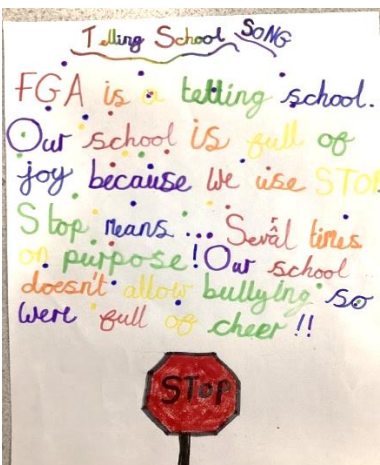 Telling School SONG
FGA is a telling school.
Our school is full of
joy because we use STOP
Stop means ... Sevâl times
on purpose! Our school
doesn't allow bullying so
were full of cheer !!
STOP